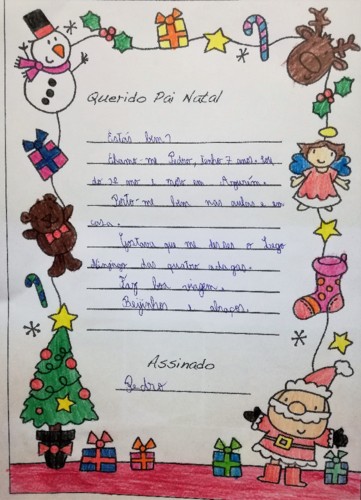 Querido Pai Natal
Estás bem?
Chamo-me Pedro, tenho 7 anos. Sou
do 2º ano e moro em
Porto-me bem nas aulas e em
casa.
Gostava que me desses o Lego
Ninjago das quatro adagas.
Faz boa viagem.
Beijinhos e abraços.
Assinado
Pedro